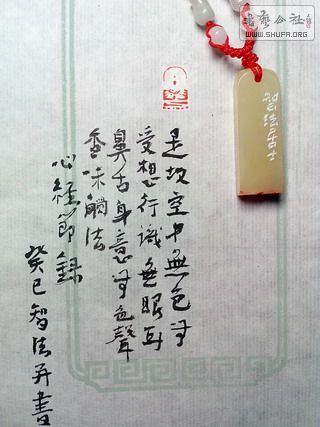 是故空中無色無
受想行識無眼耳
鼻舌身意無色聲
香味觸法
心經節錄
癸巳智法并書
智法居士
書藝公社
WWW.SHUFA.ORG